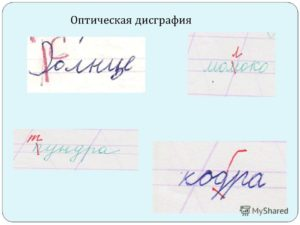 Оптическая дисграфия
Солнце
молоко
тундра
кобра
MyShared